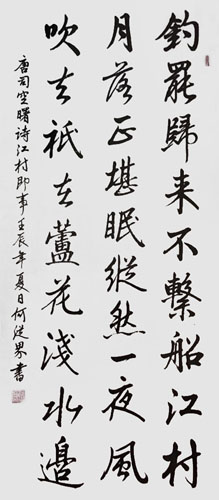 釣罷歸来不繫船江村
月落正堪眠縱然一夜風
吹去祇在蘆花淺水邊
唐司空曙诗江村即事壬辰年夏日何從界書